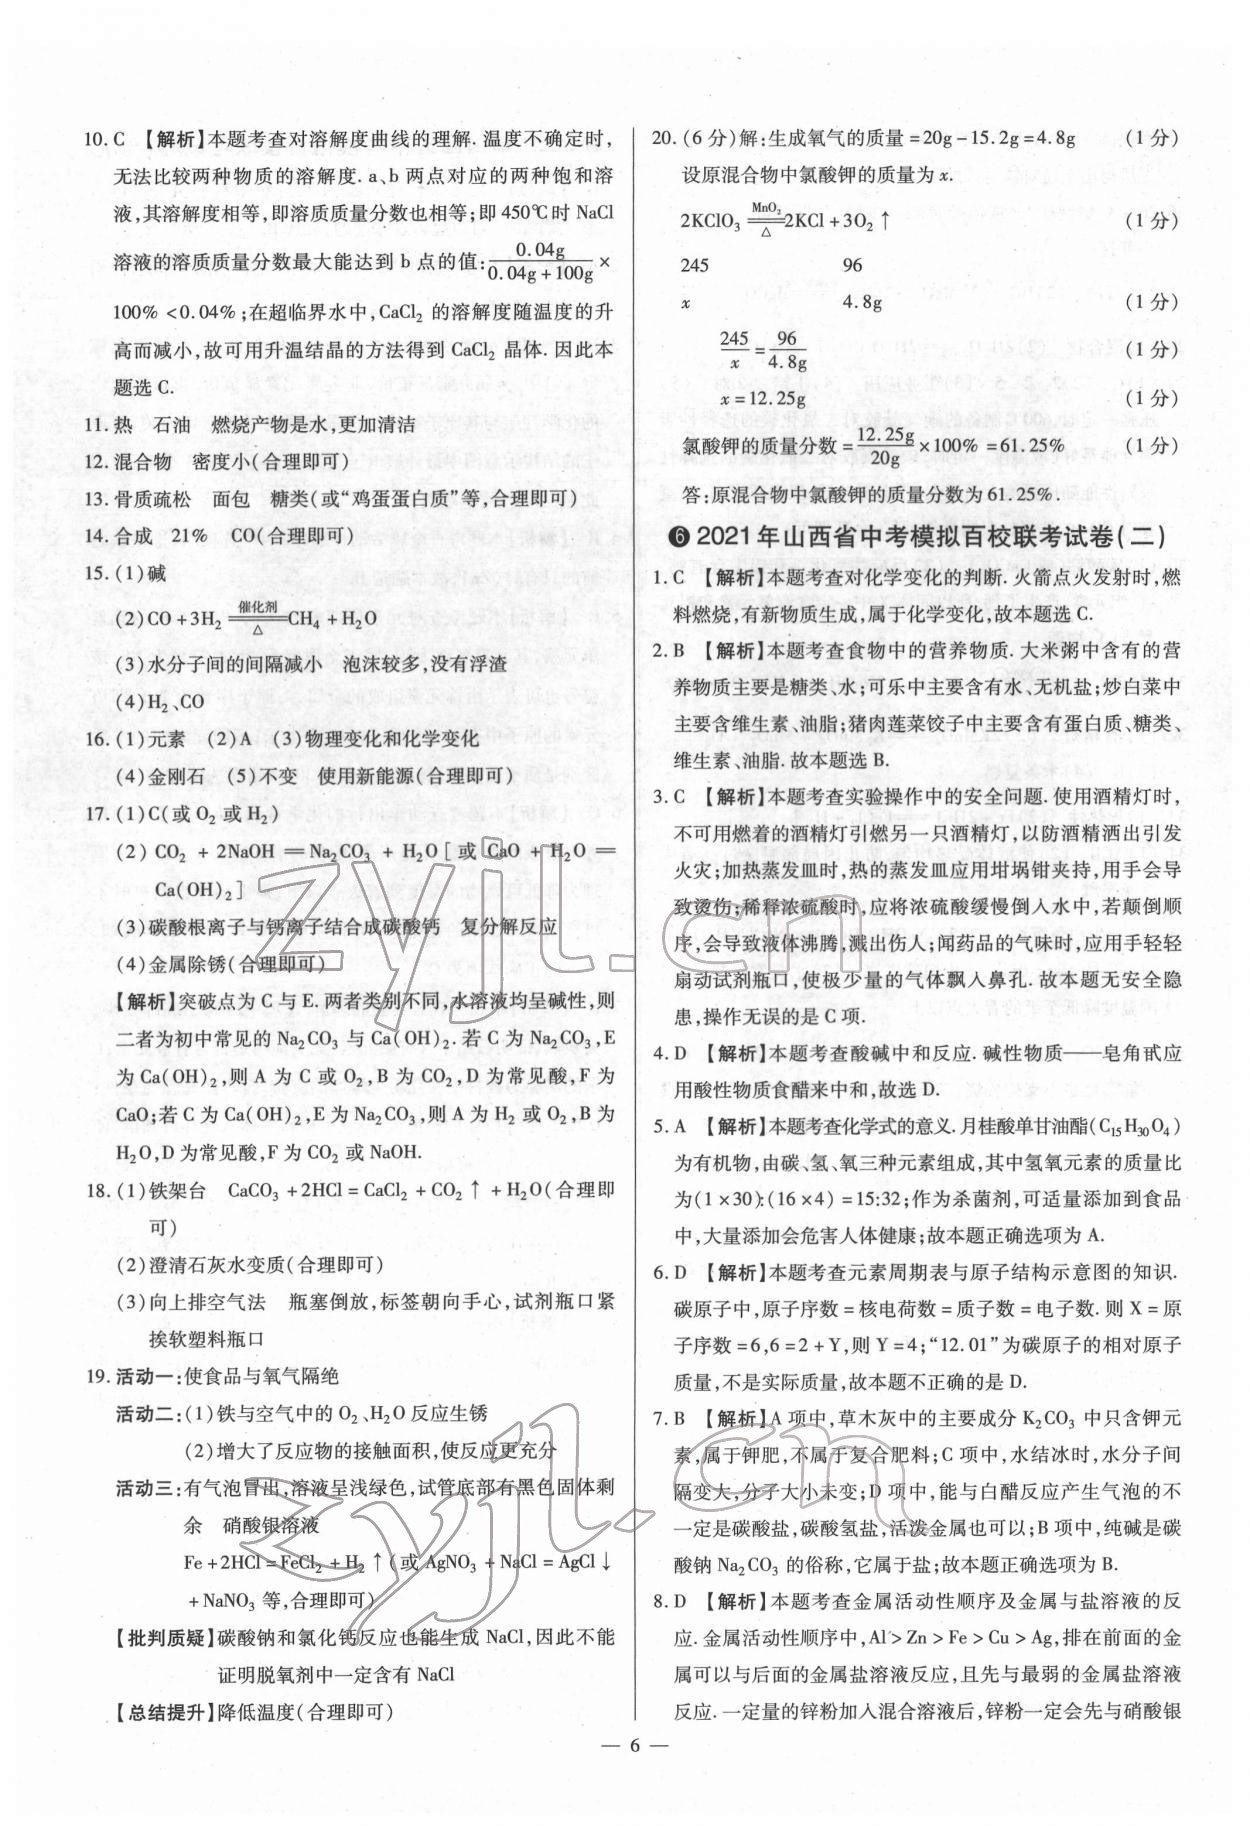 10. C 【解析】本题考查对溶解度曲线的理解. 温度不确定时,
无法比较两种物质的溶解度. a、b 两点对应的两种饱和溶
液,其溶解度相等,即溶质质量分数也相等;即 450℃时 NaCl
溶液的溶质质量分数最大能达到 b 点的值: 0.04g/(0.04g+100g) ×
100% <0.04%;在超临界水中,CaCl₂ 的溶解度随温度的升
高而减小,故可用升温结晶的方法得到 CaCl₂ 晶体. 因此本
题选 C.
11. 热 石油 燃烧产物是水,更加清洁
12. 混合物 密度小(合理即可)
13. 骨质疏松 面包 糖类(或“鸡蛋蛋白质”等,合理即可)
14. 合成 21% CO(合理即可)
15. (1)碱
(2)CO+3H₂ 催化剂══△ CH₄+H₂O
(3)水分子间的间隔减小 泡沫较多,没有浮渣
(4)H₂、CO
16. (1)元素 (2)A (3)物理变化和化学变化
(4)金刚石 (5)不变 使用新能源(合理即可)
17. (1)C(或 O₂ 或 H₂)
(2) CO₂ + 2NaOH ══ Na₂CO₃ + H₂O [ 或 CaO + H₂O ══
Ca(OH)₂ ]
(3)碳酸根离子与钙离子结合成碳酸钙 复分解反应
(4)金属除锈(合理即可)
【解析】突破点为 C 与 E. 两者类别不同,水溶液均呈碱性,则
二者为初中常见的 Na₂CO₃ 与 Ca(OH)₂. 若 C 为 Na₂CO₃,E
为 Ca(OH)₂,则 A 为 C 或 O₂,B 为 CO₂,D 为常见酸,F 为
CaO;若 C 为 Ca(OH)₂,E 为 Na₂CO₃,则 A 为 H₂ 或 O₂,B 为
H₂O,D 为常见酸,F 为 CO₂ 或 NaOH.
18. (1)铁架台 CaCO₃+2HCl=CaCl₂+CO₂↑+H₂O(合理即
可)
(2)澄清石灰水变质(合理即可)
(3)向上排空气法 瓶塞倒放,标签朝向手心,试剂瓶口紧
挨软塑料瓶口
19. 活动一:使食品与氧气隔绝
活动二:(1)铁与空气中的 O₂、H₂O 反应生锈
(2)增大了反应物的接触面积,使反应更充分
活动三:有气泡冒出,溶液呈浅绿色,试管底部有黑色固体剩
余 硝酸银溶液
Fe+2HCl=FeCl₂+H₂↑(或 AgNO₃+NaCl=AgCl↓
+NaNO₃ 等,合理即可)
【批判质疑】碳酸钠和氯化钙反应也能生成 NaCl,因此不能
证明脱氧剂中一定含有 NaCl
【总结提升】降低温度(合理即可)
20. (6 分)解:生成氧气的质量=20g-15.2g=4.8g (1 分)
设原混合物中氯酸钾的质量为 x.
2KClO₃ MnO₂══△ 2KCl+3O₂↑ (1 分)
245 96
x 4.8g (1 分)
245/x = 96/4.8g (1 分)
x=12.25g (1 分)
氯酸钾的质量分数= 12.25g/20g ×100%=61.25% (1 分)
答:原混合物中氯酸钾的质量分数为 61.25%.
❻ 2021 年山西省中考模拟百校联考试卷(二)
1. C 【解析】本题考查对化学变化的判断. 火箭点火发射时,燃
料燃烧,有新物质生成,属于化学变化,故本题选 C.
2. B 【解析】本题考查食物中的营养物质. 大米粥中含有的营
养物质主要是糖类、水;可乐中主要含有水、无机盐;炒白菜中
主要含维生素、油脂;猪肉莲菜饺子中主要含有蛋白质、糖类、
维生素、油脂. 故本题选 B.
3. C 【解析】本题考查实验操作中的安全问题. 使用酒精灯时,
不可用燃着的酒精灯引燃另一只酒精灯,以防酒精洒出引发
火灾;加热蒸发皿时,热的蒸发皿应用坩埚钳夹持,用手会导
致烫伤;稀释浓硫酸时,应将浓硫酸缓慢倒入水中,若颠倒顺
序,会导致液体沸腾,溅出伤人;闻药品的气味时,应用手轻轻
扇动试剂瓶口,使极少量的气体飘人鼻孔. 故本题无安全隐
患,操作无误的是 C 项.
4. D 【解析】本题考查酸碱中和反应. 碱性物质——皂角甙应
用酸性物质食醋来中和,故选 D.
5. A 【解析】本题考查化学式的意义. 月桂酸单甘油酯(C₁₅H₃₀O₄)
为有机物,由碳、氢、氧三种元素组成,其中氢氧元素的质量比
为(1×30):(16×4)=15:32;作为杀菌剂,可适量添加到食品
中,大量添加会危害人体健康;故本题正确选项为 A.
6. D 【解析】本题考查元素周期表与原子结构示意图的知识.
碳原子中,原子序数=核电荷数=质子数=电子数. 则 X=原
子序数=6,6=2+Y,则 Y=4;“12.01”为碳原子的相对原子
质量,不是实际质量,故本题不正确的是 D.
7. B 【解析】A 项中,草木灰中的主要成分 K₂CO₃ 中只含钾元
素,属于钾肥,不属于复合肥料;C 项中,水结冰时,水分子间
隔变大,分子大小未变;D 项中,能与白醋反应产生气泡的不
一定是碳酸盐,碳酸氢盐,活泼金属也可以;B 项中,纯碱是碳
酸钠 Na₂CO₃ 的俗称,它属于盐;故本题正确选项为 B.
8. D 【解析】本题考查金属活动性顺序及金属与盐溶液的反
应. 金属活动性顺序中,Al>Zn>Fe>Cu>Ag,排在前面的金
属可以与后面的金属盐溶液反应,且先与最弱的金属盐溶液
反应. 一定量的锌粉加入混合溶液后,锌粉一定会先与硝酸银
— 6 —
zyjl.cn
zyjl.cn